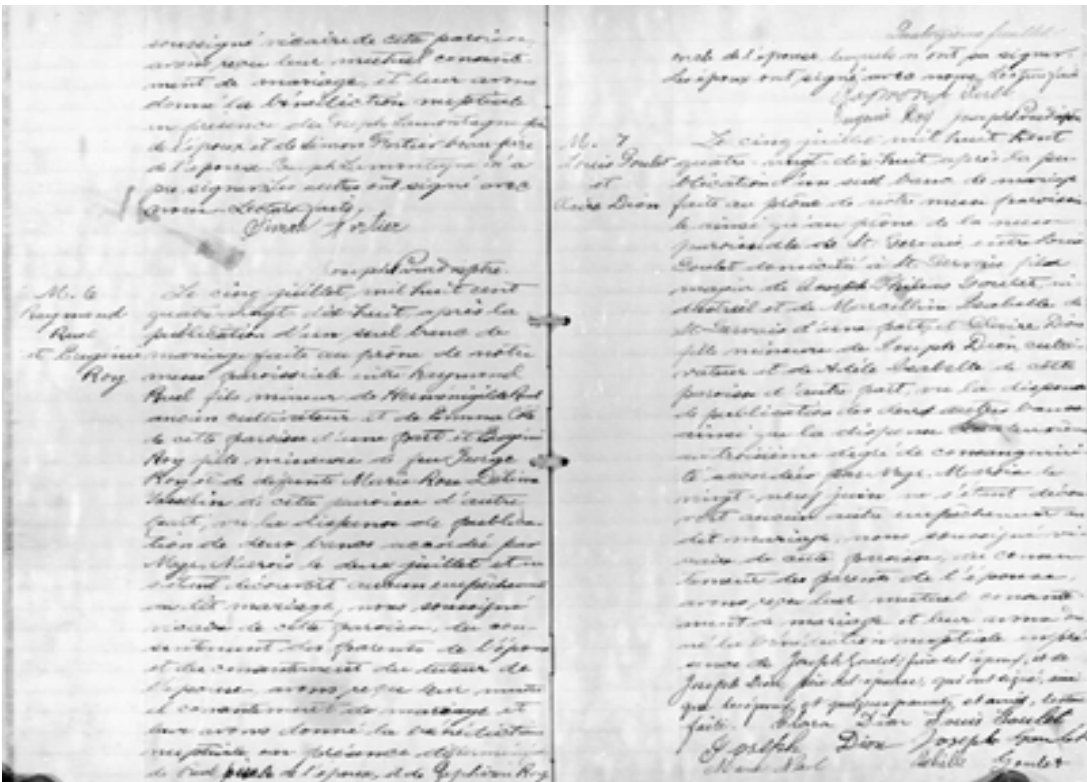 soussigné vicaire de cette paroisse,
avons reçu leur mutuel consente-
ment de mariage, et leur avons
donné la bénédiction nuptiale
en présence de Joseph Lamontagne
de l'époux et de Simon Fortier beau père
de l'épouse Joseph Lamontagne n'a
pu signer les autres ont signé avec
nous. Lecture faite.
Simon Fortier
M. 6
Raymond
Ruel
et Eugénie
Roy
Le cinq juillet, mil huit cent
quatrevingt dix huit, après la
publication d'un seul banc de
mariage faite au prône de notre
messe paroissiale entre Raymond
Ruel fils mineur de Herménégilde Ruel
ancien cultivateur et de Emma
de cette paroisse d'une part et Eugénie
Roy fille mineure de feu George
Roy et de défunte Marie Rose
de cette paroisse d'autre
part, vu la dispense de publica-
tion de deux bancs accordée par
Mgr le deux juillet et ne
s'étant découvert aucun empêchement
au dit mariage, nous soussigné
vicaire de cette paroisse, du con-
sentement des parents de l'époux
et du consentement du tuteur de
l'épouse, avons reçu leur mutuel
consentement de mariage et
leur avons donné la bénédiction
nuptiale en présence
de l'épouse, et de Roy
feuillet
oncle de l'épouse lesquels n'ont pu signer.
Les époux ont signé avec nous. Lecture faite
Raymond Ruel
Eugénie Roy
M. 7
Louis Goulet
et
Dion
Le cinq juillet mil huit cent
quatre-vingt-dix huit après la pu-
blication d'un seul banc de mariage
faite au prône de notre messe paroissia-
le ainsi qu'au prône de la messe
paroissiale de St. Gervais, entre Louis
Goulet domicilié à St. Gervais fils
majeur de Joseph Goulet
et de Marcelline Isabelle de
St. Gervais d'une part, et Dion
fille mineure de Joseph Dion culti-
vateur et de Adèle Isabelle de cette
paroisse d'autre part, vu la dispense
de publication des deux autres bancs
ainsi que la dispense
au troisième degré de consanguini-
té accordées par Mgr le
vingt-neuf juin ne s'étant décou-
vert aucun autre empêchement au
dit mariage, nous soussigné vi-
caire de cette paroisse, du consen-
tement des parents de l'épouse,
avons reçu leur mutuel consente-
ment de mariage et leur avons don-
né la bénédiction nuptiale en pré-
sence de Joseph Goulet, père de l'époux, et de
Joseph Dion père de l'épouse, qui ont signé, ainsi
que les époux et quelques parents et amis, lecture
faite. Clara Dion Louis Goulet
Joseph Dion Joseph Goulet
Goulet